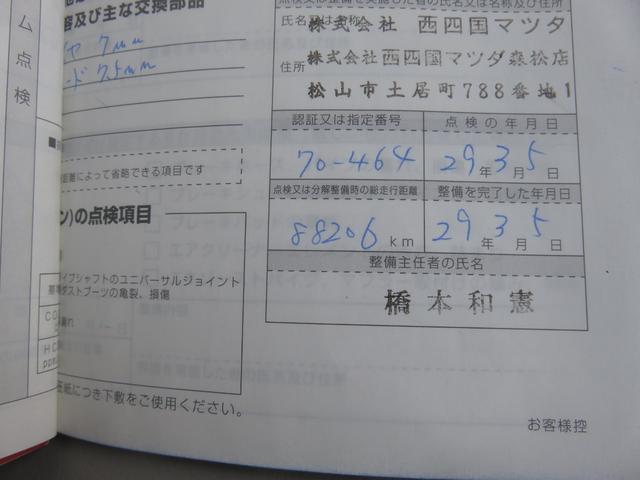 ム点検
容及び主な交換部品
7mm
7.5mm
距離によって省略できる項目です
ン)の点検項目
イブシャフトのユニバーサルジョイント
ダストブーツの亀裂、損傷
氏名又は名称
株式会社 西四国マツダ
株式会社西四国マツダ森松店
住所
松山市土居町788番地1
認証又は指定番号
点検の年月日
70-464
29年3月5日
点検又は分解整備時の総走行距離
整備を完了した年月日
88206 km
29年3月5日
整備主任者の氏名
橋本和憲
紙につき下敷をご使用ください。
お客様控